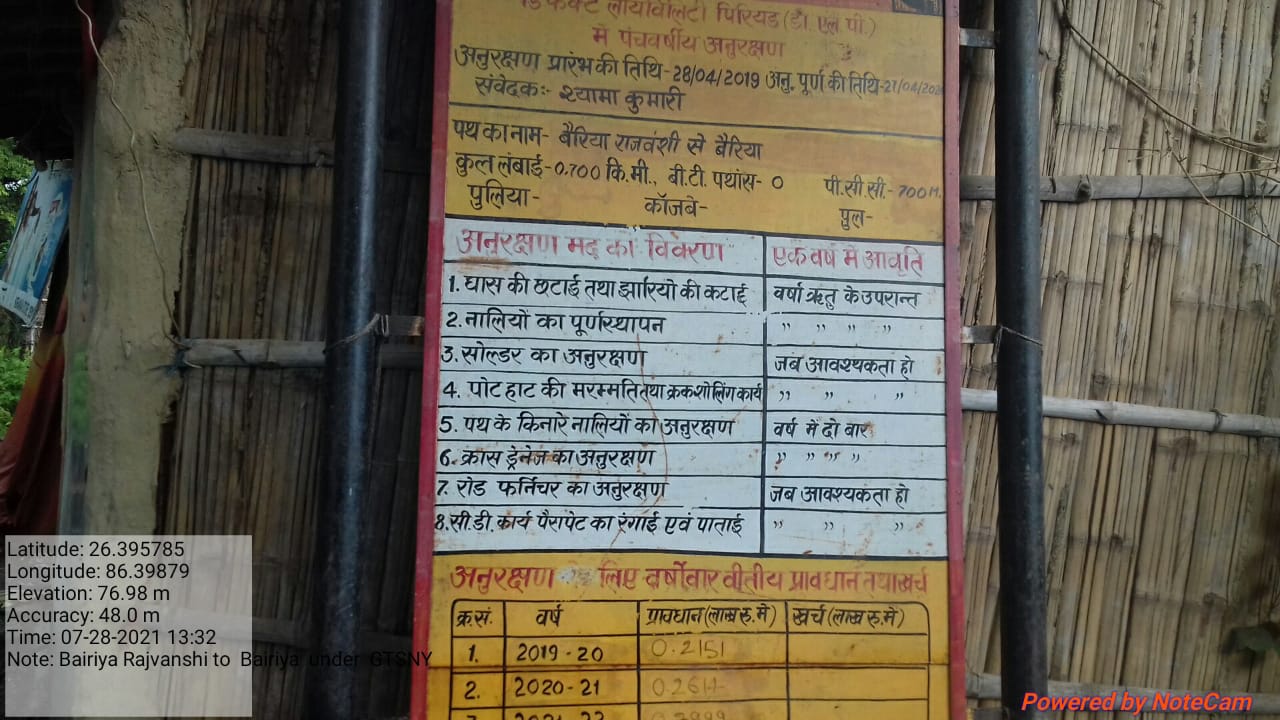 डिफेक्ट लायबिलिटी पिरियड (डी. एल. पी.)
में पंचवर्षीय अनुरक्षण
अनुरक्षण प्रारंभ की तिथि-28/04/2019 अनु. पूर्ण की तिथि-27/04/
संवेदकः- श्यामा कुमारी
पथ का नाम- बैरिया राजवंशी से बैरिया
कुल लंबाई-0.700 कि.मी., बी.टी. पथांस- 0 पी.सी.सी.-700 M.
पुलिया- कॉजवे- पुल-
अनुरक्षण मद का विवरण एक वर्ष में आवृति
1. घास की छटाई तथा झारियों की कटाई वर्षा ऋतु के उपरान्त
2. नालियों का पूर्णस्थापन " " " "
3. सोल्डर का अनुरक्षण जब आवश्यकता हो
4. पोट हाट की मरम्मति तथा क्रकशीलिंग कार्य " " "
5. पथ के किनारे नालियों का अनुरक्षण वर्ष में दो बार
6. क्रास ड्रेनेज का अनुरक्षण " " " "
7. रोड फर्निचर का अनुरक्षण जब आवश्यकता हो
8. सी.डी. कार्य पैरापेट का रंगाई एवं पाताई " " "
अनुरक्षण लिए वर्षोवार वीतीय प्रावधान तथा खर्च
क्र.सं. वर्ष प्रावधान (लाख रु. मे) खर्च (लाख रु. मे)
1. 2019-20 0.2151
2. 2020-21
Latitude: 26.395785
Longitude: 86.39879
Elevation: 76.98 m
Accuracy: 48.0 m
Time: 07-28-2021 13:32
Note: Bairiya Rajvanshi to Bairiya under GTSNY
Powered by NoteCam